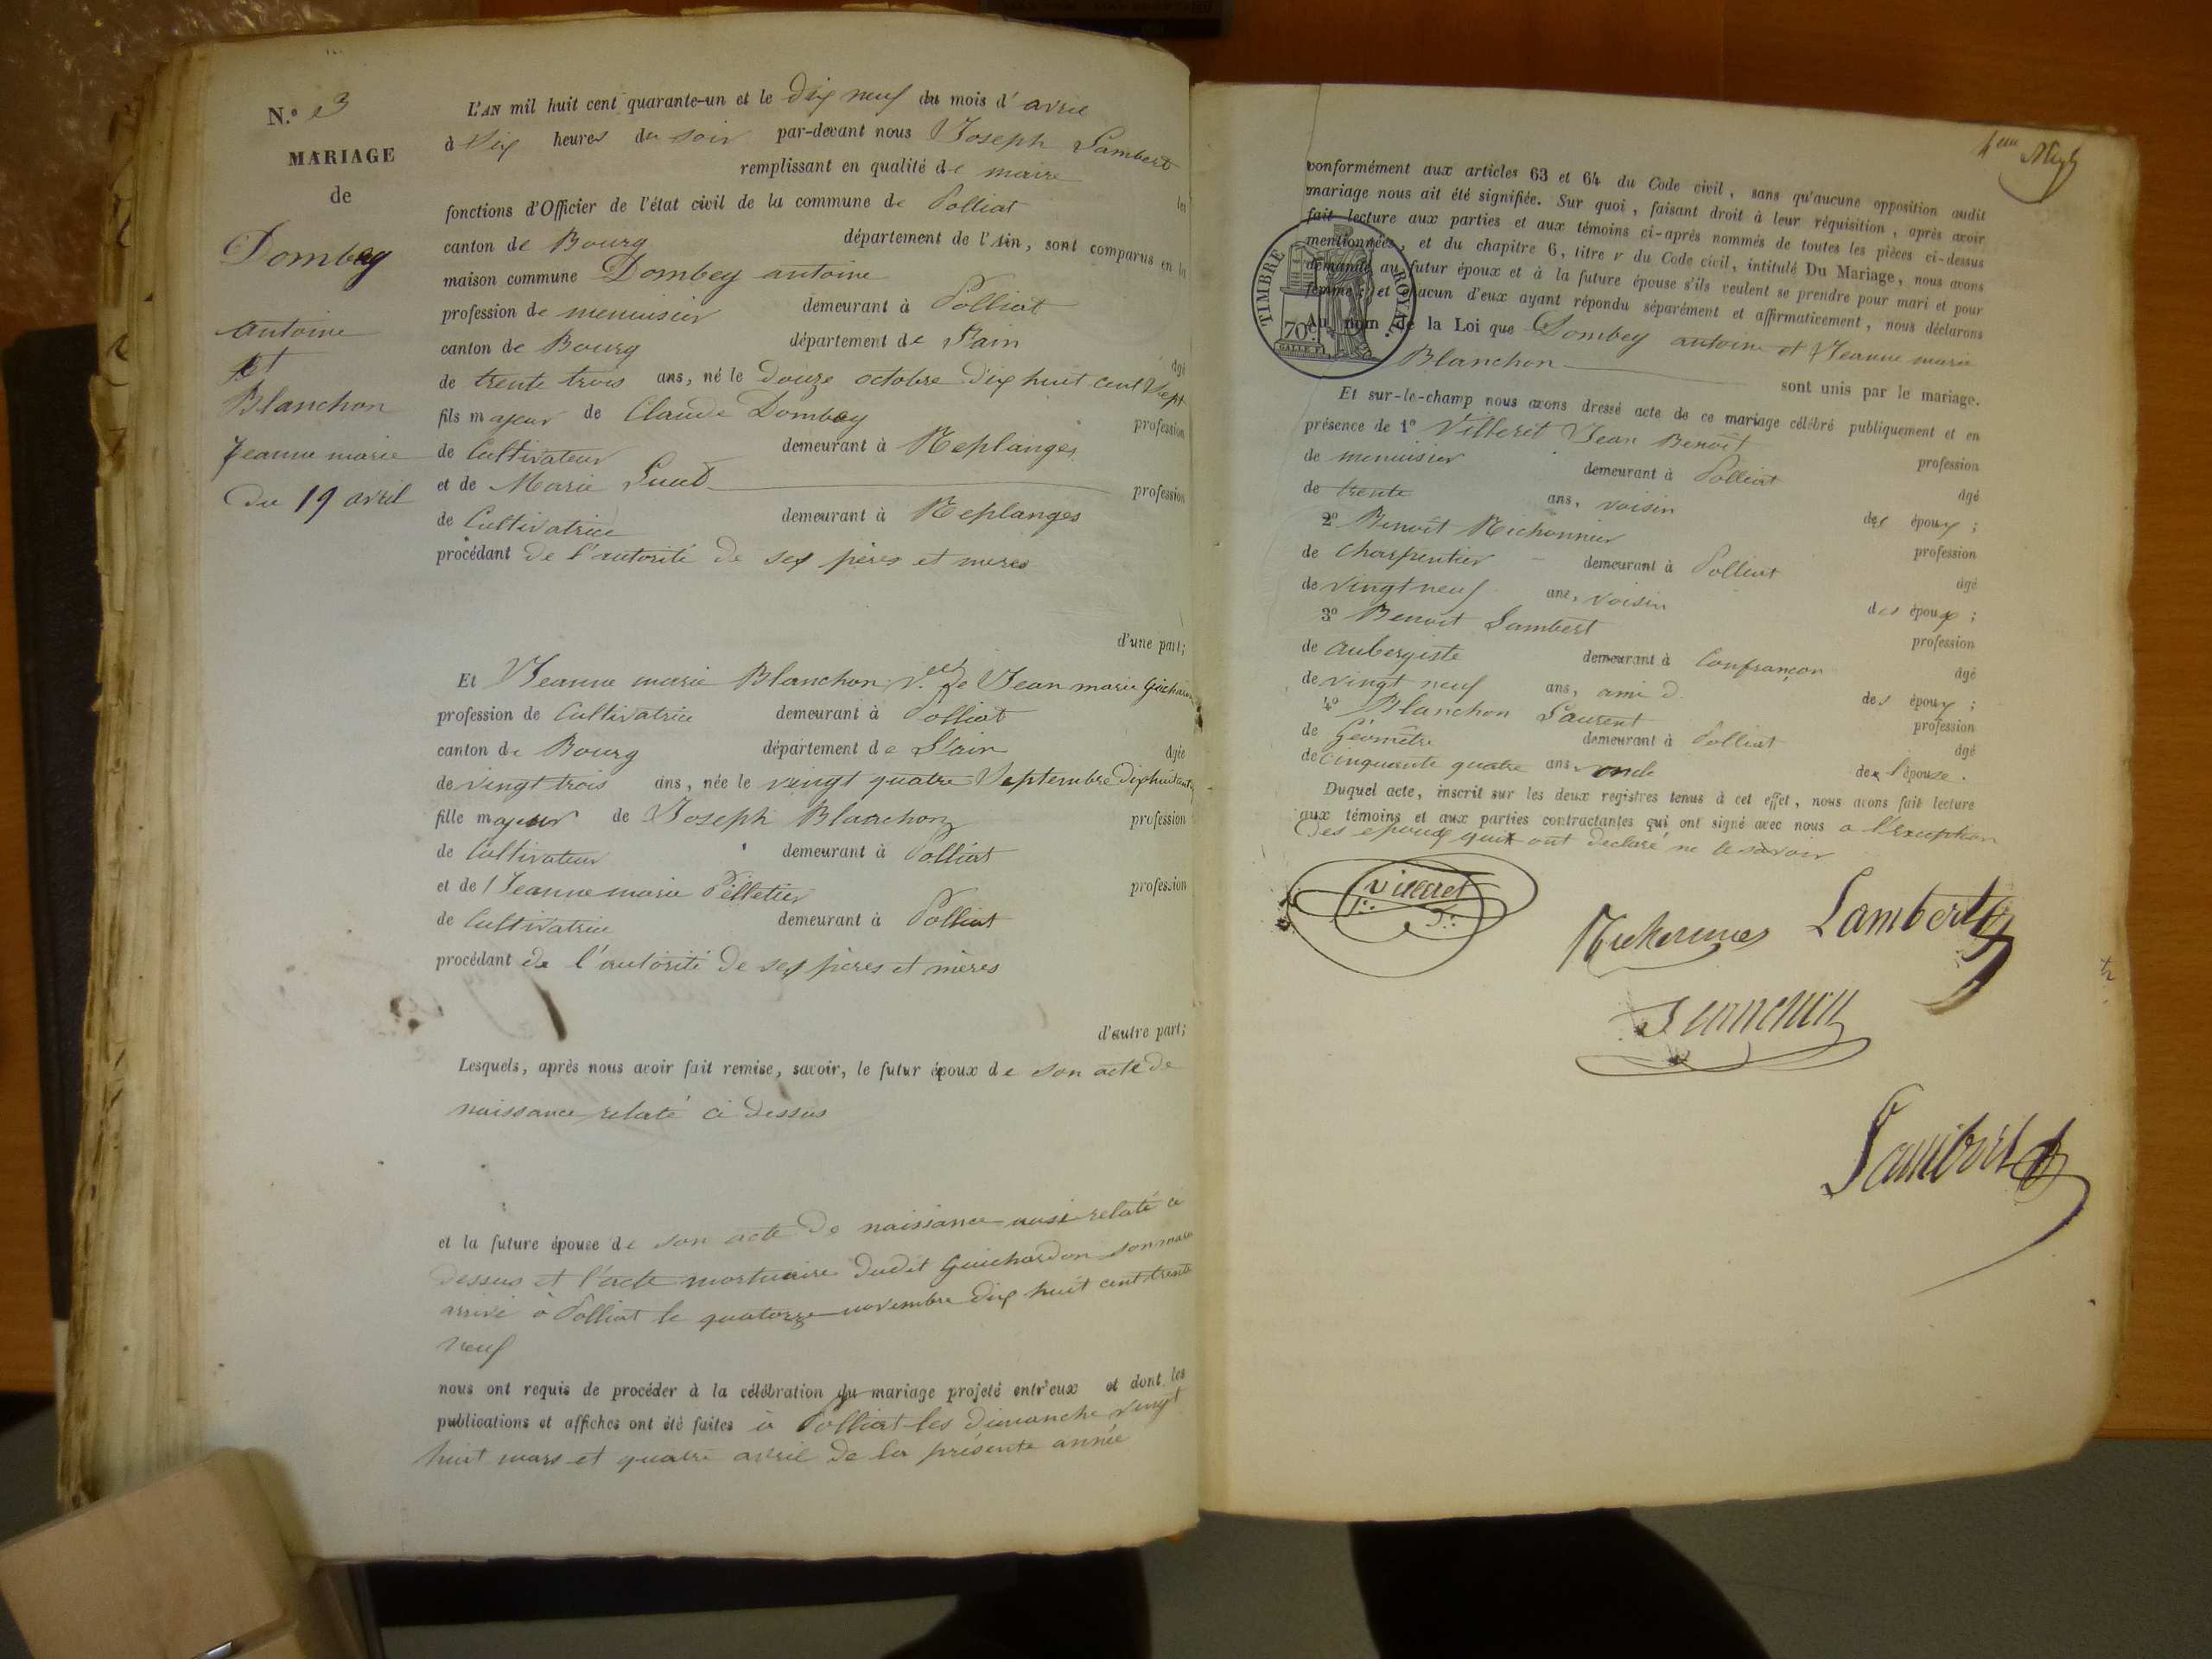 N.° 3
MARIAGE
de
Dombey
antoine
et
Blanchon
Jeanne marie
Du 19 avril
L'AN mil huit cent quarante-un et le dix neuf du mois d'avril
à six heures du soir par-devant nous Joseph Lambert
remplissant en qualité de maire les
fonctions d'Officier de l'état civil de la commune de Polliat
canton de Bourg département de l'Ain, sont comparus en la
maison commune Dombey antoine
profession de menuisier demeurant à Polliat
canton de Bourg département de l'ain âgé
de trente trois ans, né le douze octobre dix huit cent sept
fils majeur de Claude Dombey profession
de Cultivateur demeurant à Replanges
et de Marie profession
de Cultivatrice demeurant à Replanges
procédant de l'autorité de ses pères et mères
d'une part;
Et Jeanne marie Blanchon v.ve de Jean marie
profession de Cultivatrice demeurant à Polliat
canton de Bourg département de L'ain âgée
de vingt trois ans, née le vingt quatre Septembre dix huit cent
fille majeur de Joseph Blanchon profession
de Cultivateur demeurant à Polliat
et de Jeanne marie Pelletier profession
de Cultivatrice demeurant à Polliat
procédant de l'autorité de ses pères et mères
d'autre part;
Lesquels, après nous avoir fait remise, savoir, le futur époux de son acte de
naissance relaté ci dessus
et la future épouse de son acte de naissance aussi relaté ci
dessus et l'acte mortuaire dudit Guichardon son mari
arrivé à Polliat le quatorze novembre dix huit cent trente
neuf
nous ont requis de procéder à la célébration du mariage projeté entr'eux et dont les
publications et affiches ont été faites à Polliat les dimanche vingt
huit mars et quatre avril de la présente année
conformément aux articles 63 et 64 du Code civil, sans qu'aucune opposition audit
mariage nous ait été signifiée. Sur quoi, faisant droit à leur réquisition, après avoir
fait lecture aux parties et aux témoins ci-après nommés de toutes les pièces ci-dessus
mentionnées, et du chapitre 6, titre V du Code civil, intitulé Du Mariage, nous avons
demandé au futur époux et à la future épouse s'ils veulent se prendre pour mari et pour
femme; et chacun d'eux ayant répondu séparément et affirmativement, nous déclarons
Au nom de la Loi que Dombey antoine et Jeanne marie
Blanchon sont unis par le mariage.
TIMBRE ROYAL.
70c
Et sur-le-champ nous avons dressé acte de ce mariage célébré publiquement et en
présence de 1° Villeret Jean Benoît profession
de menuisier demeurant à Polliat âgé
de trente ans, voisin des époux;
2° Benoît Richonnier profession
de Charpentier demeurant à Polliat âgé
de vingt neuf ans, voisin des époux;
3° Benoit Lambert profession
de aubergiste demeurant à Confrançon âgé
de vingt neuf ans, ami d. des époux;
4° Blanchon Laurent profession
de Géomètre demeurant à Polliat âgé
de Cinquante quatre ans, oncle de l'épouse.
Duquel acte, inscrit sur les deux registres tenus à cet effet, nous avons fait lecture
aux témoins et aux parties contractantes qui ont signé avec nous a l'exception
des epoux qui ont declaré ne le savoir
Villeret
Lambert
Lambert